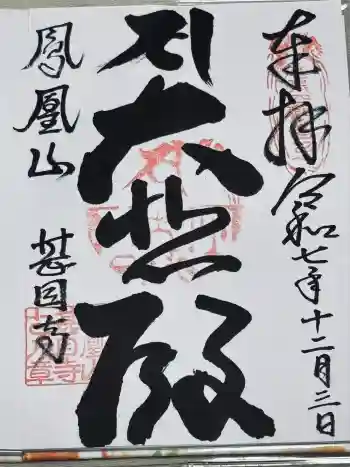 奉拝 令和七年十二月三日
大悲殿
鳳凰山
甚目寺